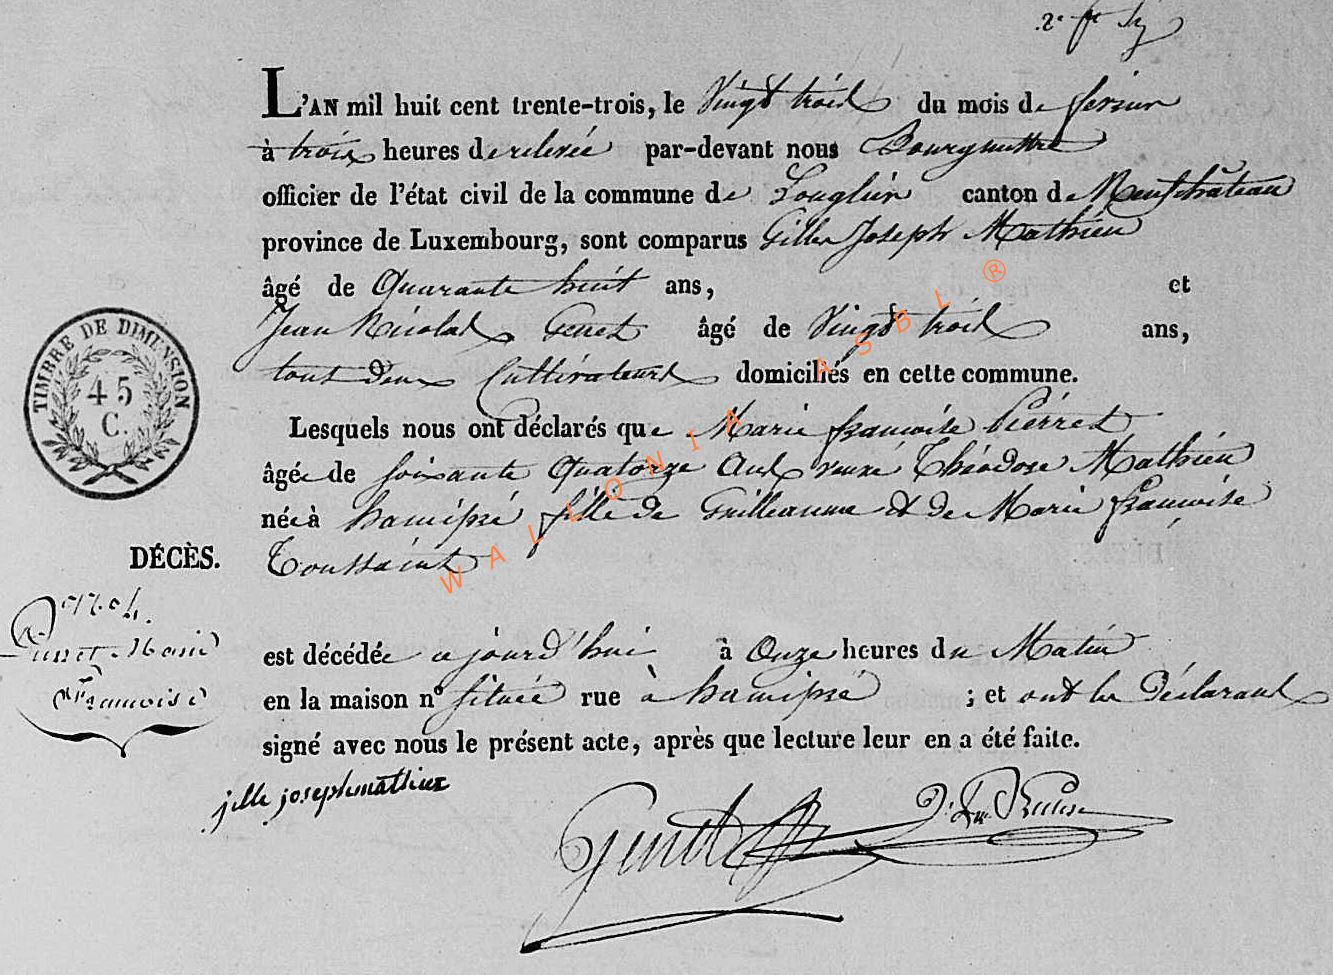 L'AN mil huit cent trente-trois, le Vingt trois du mois de fevrier
à trois heures de relevée par-devant nous Bourgmettre
officier de l'état civil de la commune de Longlier canton de Neufchâteau
province de Luxembourg, sont comparus Gille Joseph Mathieu
âgé de Quarante huit ans, et
Jean Nicolas Genot âgé de Vingt trois ans,
tous deux Cultivateurs domiciliés en cette commune.
Lesquels nous ont déclarés que Marie françoise Pierret
âgée de soixante Quatorze Ans veuve Théodore Mathieu
née à hamipré fille de Guilleaume et de Marie françoise
Toussaint
TIMBRE DE DIMENSION
45
C.
DÉCÈS.
N° 4.
Pierret Marie
Françoise
est décédée ajourd'hui à Onze heures du Matin
en la maison n° située rue à hamipré ; et ont les Déclarants
signé avec nous le présent acte, après que lecture leur en a été faite.
jille joseph mathieu
Genot
WALLONIA ASBL ®